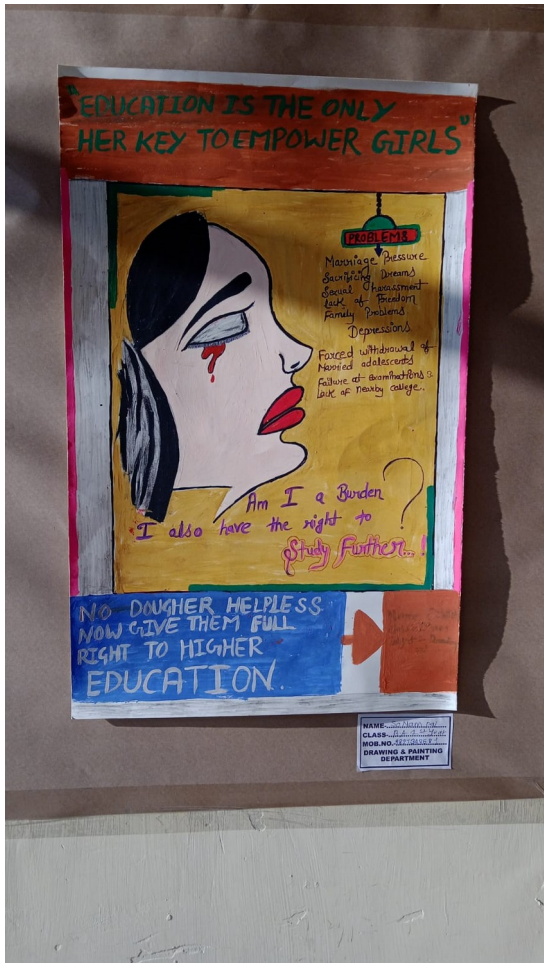 "EDUCATION IS THE ONLY
HER KEY TO EMPOWER GIRLS"
PROBLEMS
Marriage Pressure
Sacrificing Dreams
Sexual harassment
lack of Freedom
Family Problems
Depressions
Farced withdrawal of
Married adalescents
Failure at Examinations &
lack of nearby college.
Am I a Burden ?
I also have the right to
Study Further...!
NO DOUGHER HELPLESS
NOW GIVE THEM FULL
RIGHT TO HIGHER
EDUCATION.
NAME-
CLASS- B.A. Year
MOB.NO.
DRAWING & PAINTING
DEPARTMENT